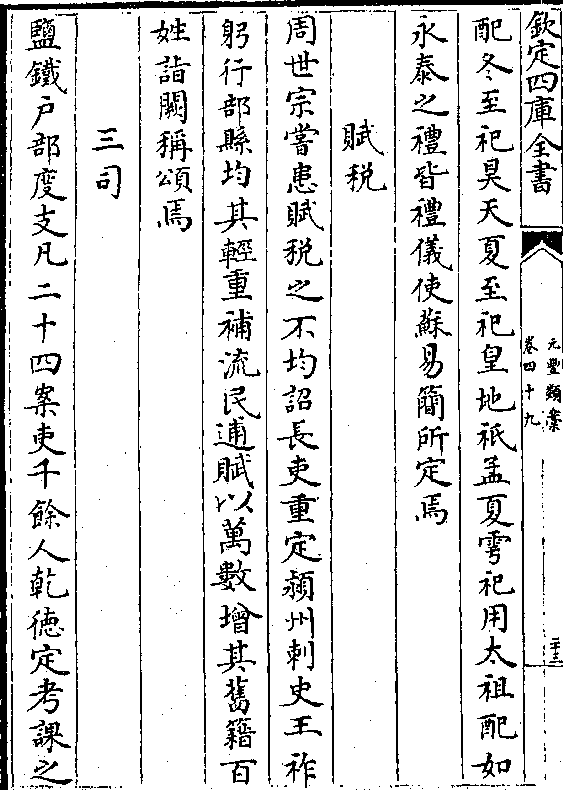 欽定四庫全書
元豐類藁
卷四十九
二十三
配冬至祀昊天夏至祀皇地祇孟夏雩祀用太祖配如
永泰之禮皆禮儀使蘇易簡所定焉
賦税
周世宗嘗患賦税之不均詔長吏重定潁州刺史王祚
躬行部縣均其輕重補流民逋賦以萬數增其舊籍百
姓詣闕稱頌焉
三司
鹽鐵户部度支凡二十四案吏千餘人乾徳定考課之